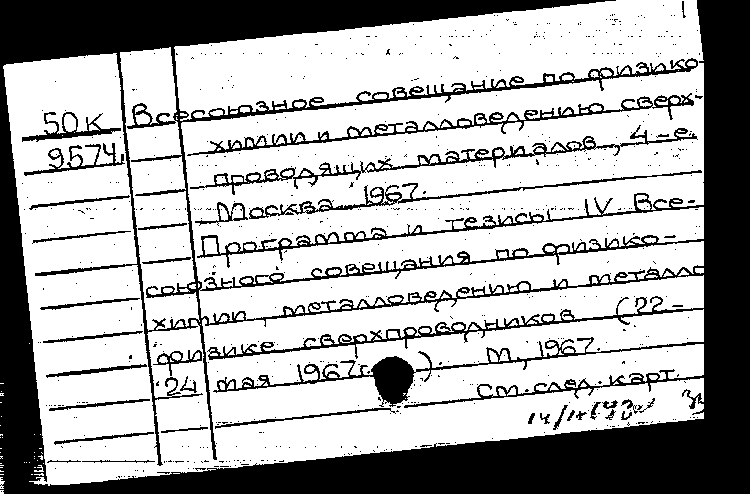 50к Всесоюзное совещание по физико-
9574. химии и металловедению сверх-
проводящих материалов, 4-е.
Москва. 1967.
Программа и тезисы IV Все-
союзного совещания по физико-
химии, металловедению и металло
физике сверхпроводников (22-
24 мая 1967г. ). М., 1967.
См. след. карт.